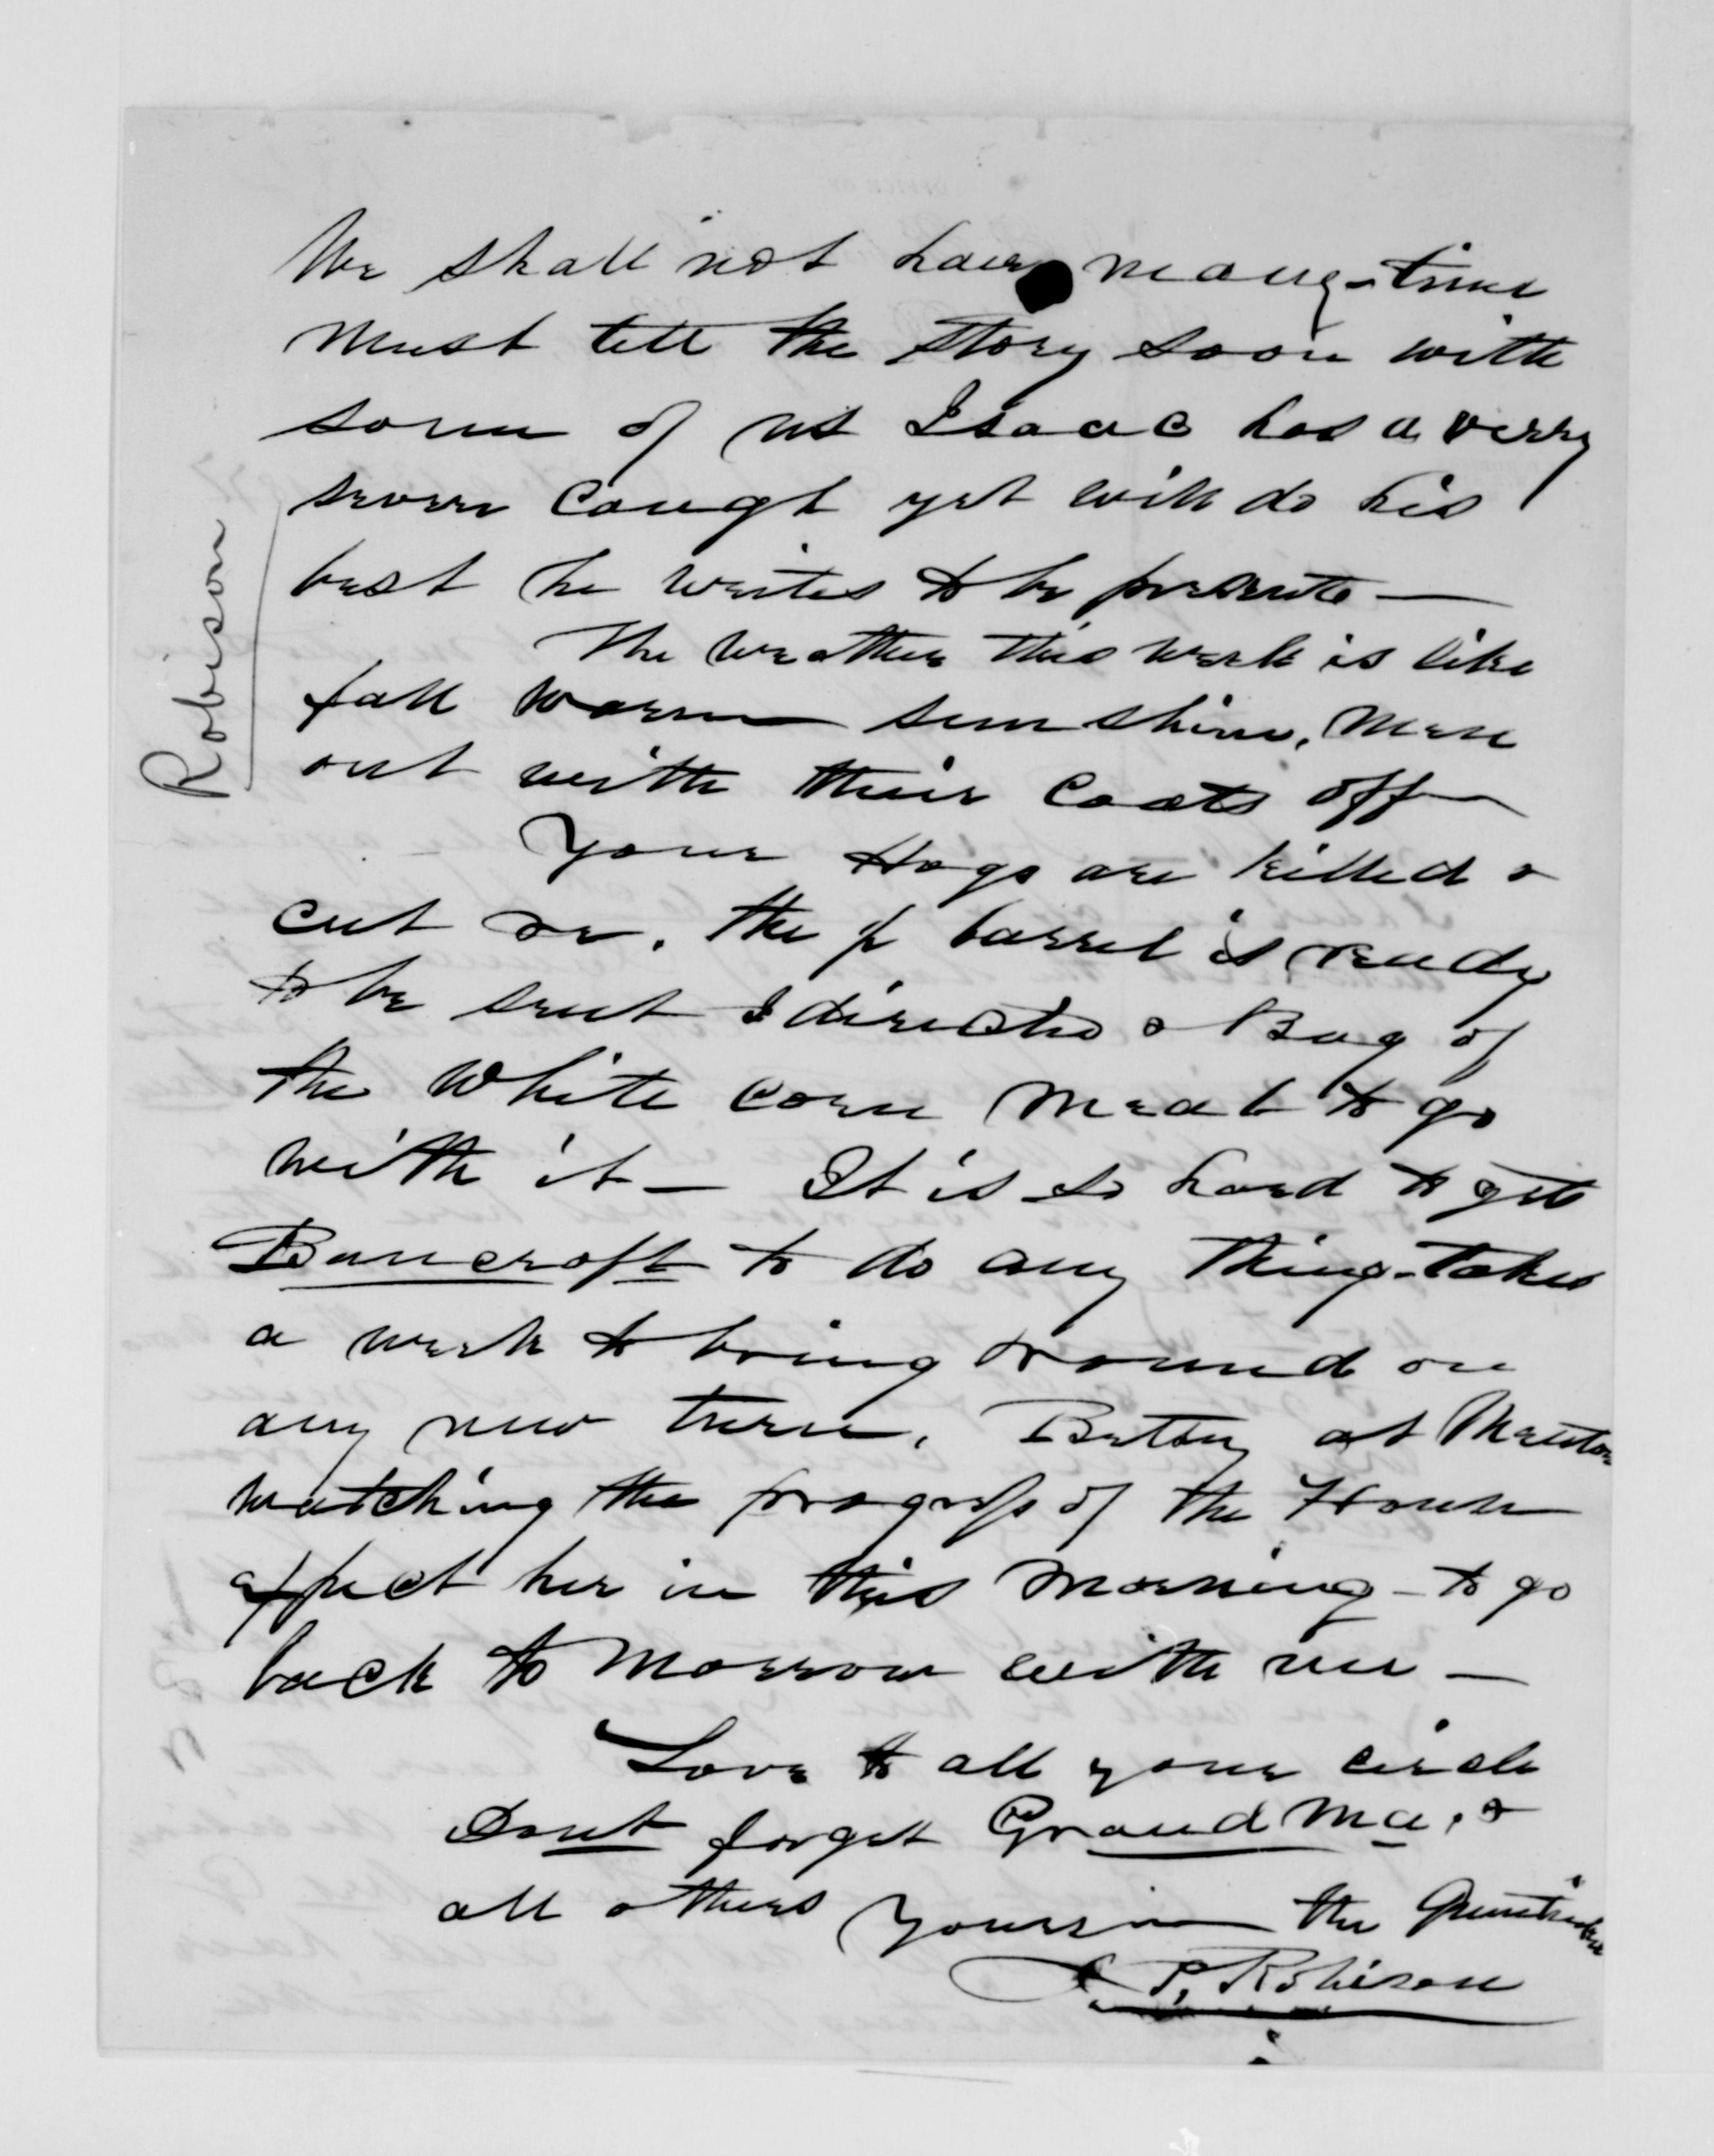 We shall not have many - time
must tell the story soon with
some of us Isaac has a verry
severe Cough yet will do his
best he writes to be presente —
The weather this week is like
fall warm sun shine, Men
out with their Coats off —
Your Hogs are killed &
cut &c. the barrel is ready
to be sent I directed a Bag of
the White corn Meal to go
with it — It is so hard to get
Bancroft to do any thing - takes
a week to bring around on
any new turn. Betsey at
watching the progress of the House
expect her in this Morning - to go
back to Morrow with me —
Love to all your circle
Dont forget Grand Ma, &
all others Yours in the
J. P. Robison
Robison